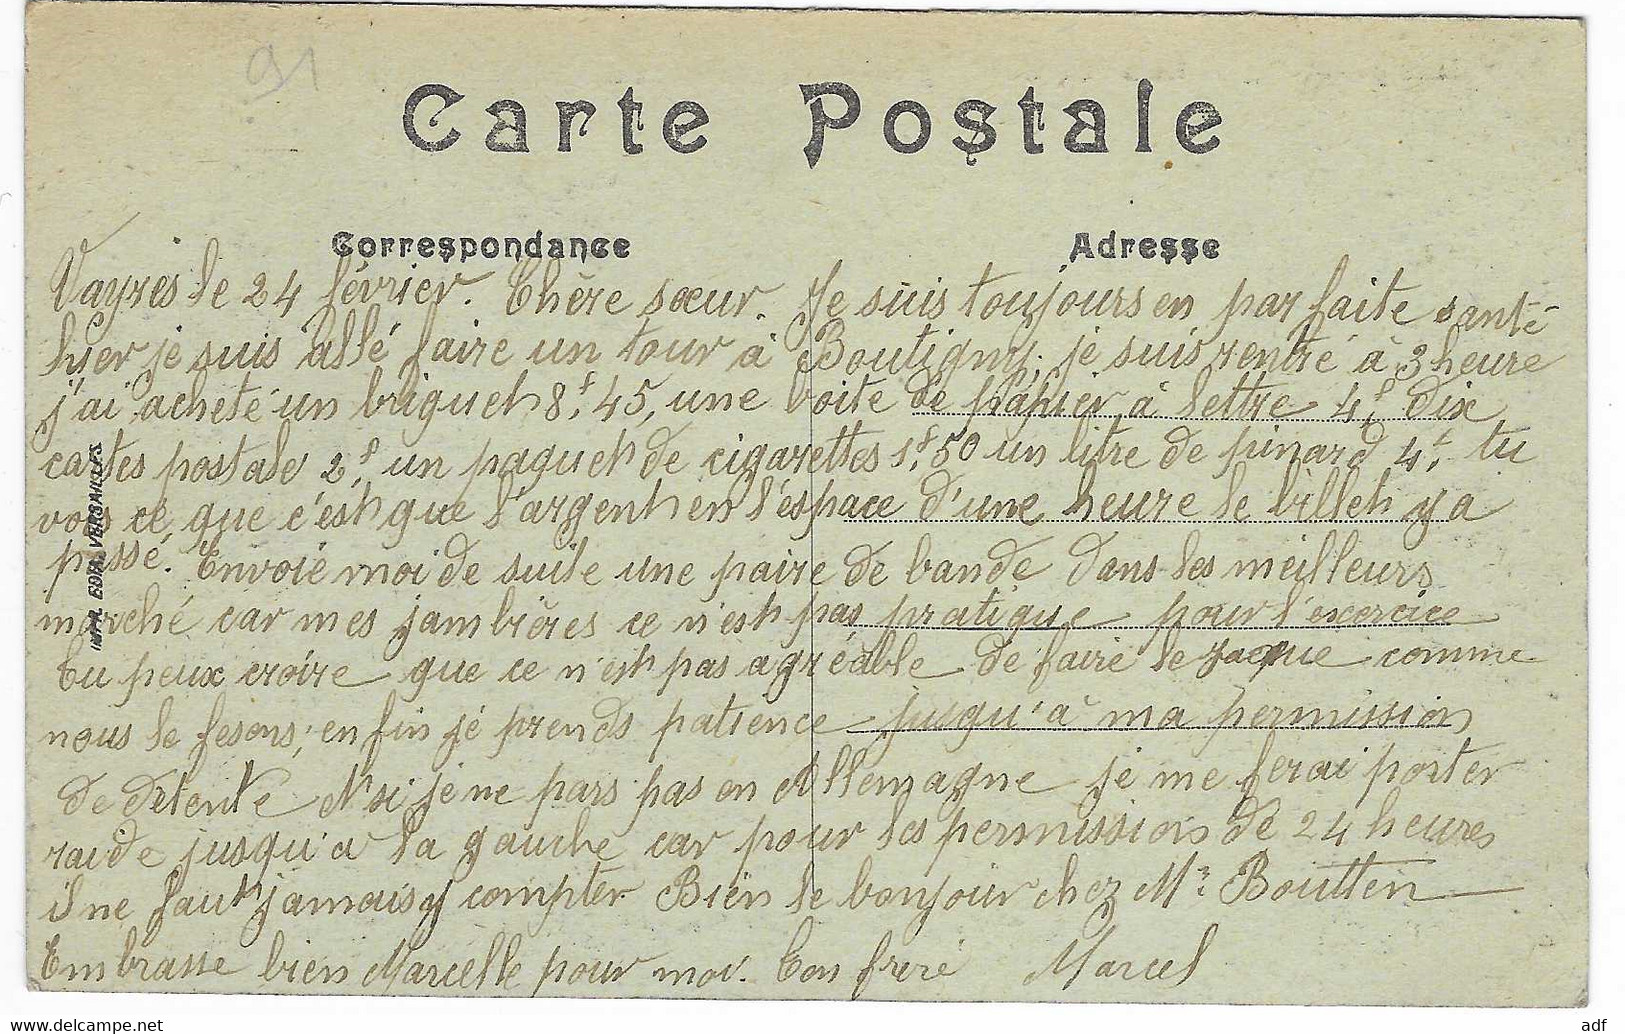 91
Carte Postale
Correspondance
Adresse
Vayres le 24 février. Chère sœur. Je suis toujours en parfaite santé
hier je suis allé faire un tour à Boutigny, je suis rentré à 3 heure
j'ai acheté un briquet 8f,45, une boite de papier à lettre 4f dix
cartes postale 2f un paquet de cigarettes 1f,50 un litre de pinard 4f, tu
vois ce que c'est que l'argent en l'éspace d'une heure le billet y a
passé. Envoie moi de suite une paire de bande dans les meilleurs
marché car mes jambières ce n'est pas pratique pour l'exercice
Tu peux croire que ce n'est pas agréable de faire le zouzoue comme
nous le fesons; enfin je prends patience jusqu'à ma permission
de détente si je ne pars pas en Allemagne je me ferai porter
raide jusqu'à la gauche car pour les permissions de 24 heures
il ne faut jamais y compter Bien le bonjour chez Mr Boutten
Embrasse bien Marcelle pour moi. Ton frère Marcel
IMPR. EDIA, VERSAILLES
https://www.delcampe.net
adf